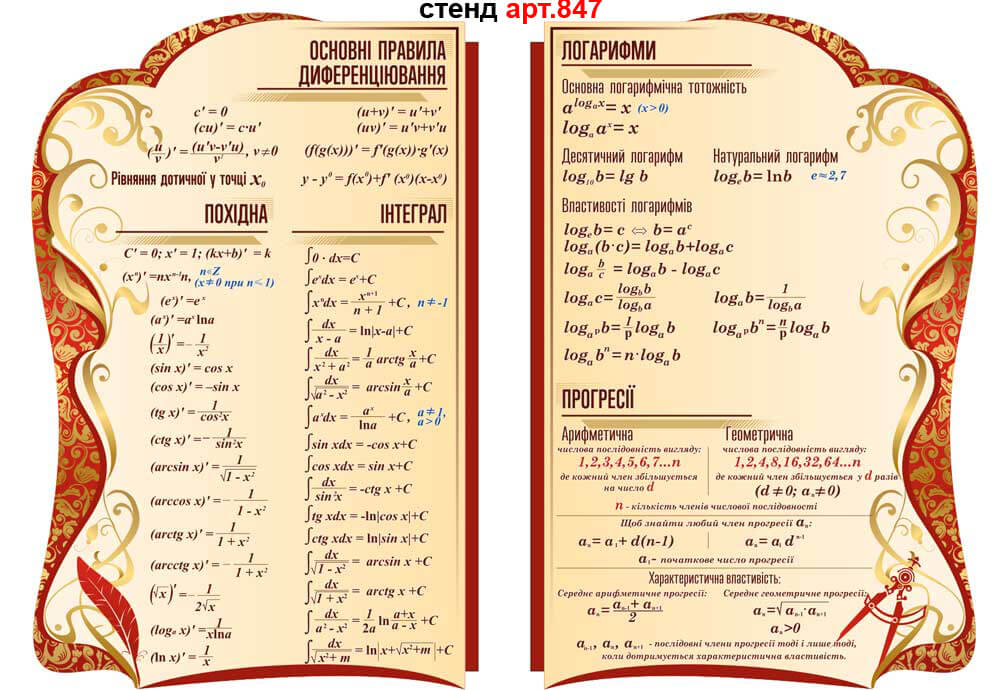 стенд арт.847
ОСНОВНІ ПРАВИЛА
ДИФЕРЕНЦІЮВАННЯ
c' = 0
(cu)' = c·u'
(u/v)' = (u'v-v'u)/v², v≠0
(u+v)' = u'+v'
(uv)' = u'v+v'u
(f(g(x)))' = f'(g(x))·g'(x)
Рівняння дотичної у точці x₀
y - y⁰ = f(x⁰)+f' (x⁰)(x-x⁰)
ПОХІДНА
C' = 0; x' = 1; (kx+b)' = k
(xⁿ)' =nxⁿ⁻¹n, n∈Z
(x≠0 при n<1)
(eˣ)' =eˣ
(aˣ)' =aˣ lna
(1/x)' =- 1/x²
(sin x)' = cos x
(cos x)' = –sin x
(tg x)' = 1/cos²x
(ctg x)' =- 1/sin²x
(arcsin x)' = 1/√1 - x²
(arccos x)' = - 1/1 - x²
(arctg x)' = 1/1 + x²
(arcctg x)' = - 1/1 + x²
(√x)' =- 1/2√x
(logₐ x)' = 1/xlna
(ln x)' = 1/x
ІНТЕГРАЛ
∫0 · dx=C
∫eˣdx = eˣ+C
∫xⁿdx = xⁿ⁺¹/n + 1 +C , n≠-1
∫dx/x - a = ln|x-a|+C
∫dx/x² + a² = 1/a arctg x/a +C
∫dx/√a² - x² = arcsin x/a +C
∫aˣdx = aˣ/lna +C , a≠1,
a>0
∫sin xdx = -cos x+C
∫cos xdx = sin x+C
∫dx/sin²x = -ctg x +C
∫tg xdx = -ln|cos x|+C
∫ctg xdx = ln|sin x|+C
∫dx/√1 - x² = arcsin x +C
∫dx/√1 + x² = arctg x +C
∫dx/a² - x² = 1/2a ln a+x/a - x +C
∫dx/√x²+ m = ln|x+√x²+m|+C
ЛОГАРИФМИ
Основна логарифмічна тотожність
a^logₐx= x (x>0)
logₐ aˣ= x
Десятичний логарифм
log₁₀b= lg b
Натуральний логарифм
logₑb= lnb e≈2,7
Впастивості логарифмів
logₑb= c ⇔ b= aᶜ
logₐ(b·c)= logₐb+logₐc
logₐ b/c = logₐb - logₐc
logₐc= log_b b/log_b a
logₐb= 1/log_b a
log_aᵖ b= 1/p logₐb
log_aᵖ bⁿ= n/p logₐb
logₐbⁿ= n·logₐb
ПРОГРЕСІЇ
Арифметична
числова послідовність вигляду:
1,2,3,4,5,6,7...n
де кожний член збільшується
на число d
Геометрична
числова послідовність вигляду:
1,2,4,8,16,32,64...n
де кожний член збільшується у d разів
(d≠0; aₙ≠0)
n - кількість членів числової послідовності
Щоб знайти любий член прогресії aₙ:
aₙ= a₁+ d(n-1)
aₙ= a₁ dⁿ⁻¹
a₁- початкове число прогресії
Характеристична впастивість:
Середнє арифметичне прогресії:
aₙ= aₙ₋₁+ aₙ₊₁/2
Середнє геометричне прогресії:
aₙ=√aₙ₋₁·aₙ₊₁
aₙ>0
aₙ₋₁, aₙ, aₙ₊₁ - послідовні члени прогресії тоді і лише тоді,
коли дотримується характеристична властивість.